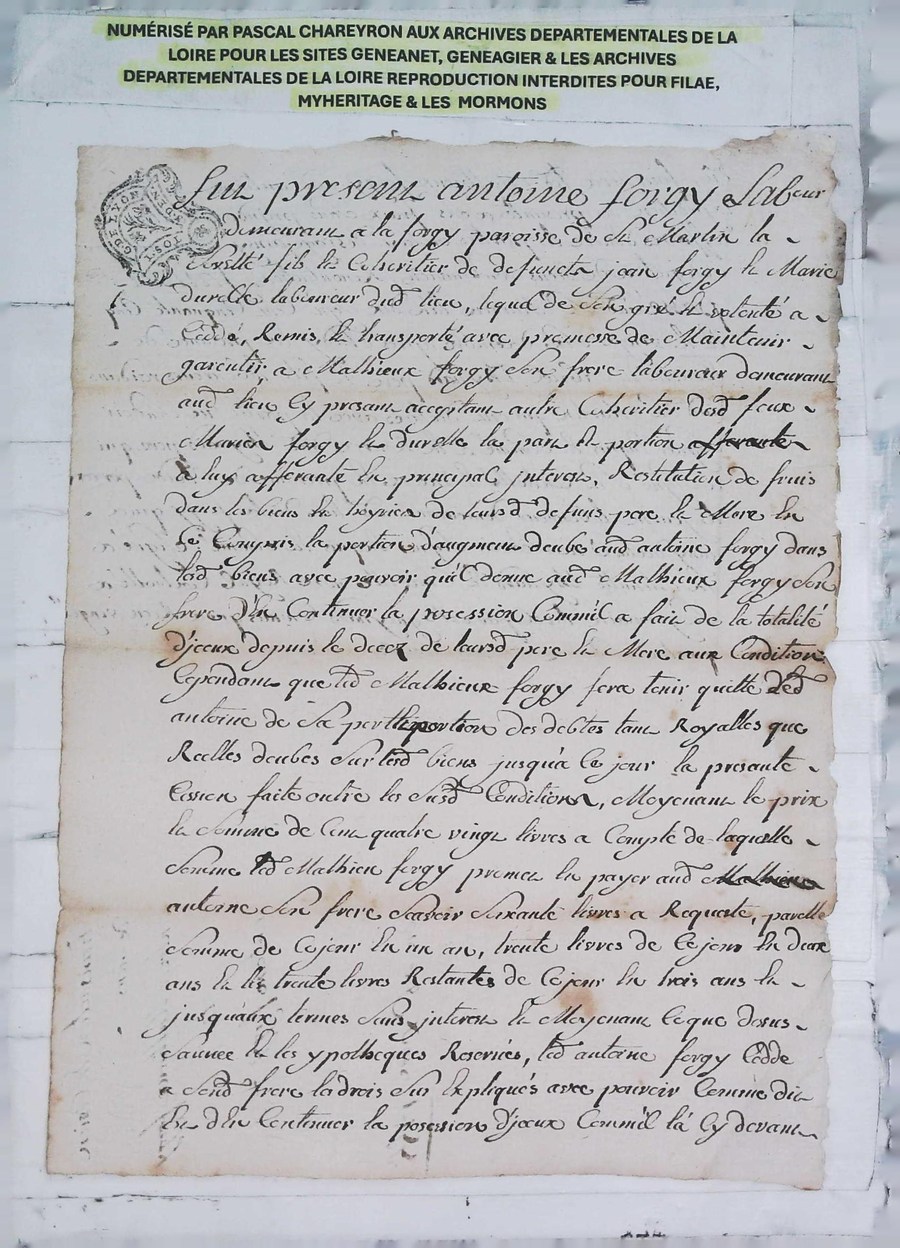 NUMÉRISÉ PAR PASCAL CHAREYRON AUX ARCHIVES DEPARTEMENTALES DE LA
LOIRE POUR LES SITES GENEANET, GENEAGIER & LES ARCHIVES
DEPARTEMENTALES DE LA LOIRE REPRODUCTION INTERDITES POUR FILAE,
MYHERITAGE & LES MORMONS
G DE LYON
fut present antoine forgy Labeur
demeurant a la forgy paroisse de St Martin la
Sauvété fils et Coheritier de defuncts jean forgy et Marie
durelle laboureur dud lieu, lequel de Son gré et volonté a
Cèddé, Remis, et transporté avec promesse de Maintenir
garentir a Mathieux forgy Son frere laboureur demeurant
aud lieu Cy present acceptant autre Coheritier desd feux
Mariea forgy et durelle la part et portion afferante
a luy afferante En principal, interest, Restitution de fruis
dans les biens et hoyries de leursd defuns pere et Mere En
Ce Compris la portion d'augment deube aud antoine forgy dans
lesd biens avec pouvoir qu'il donne aud Mathieux forgy Son
frere d'En Continuer la prosession Comm'il a fait de la totalité
d'jceux depuis le decez de leursd pere et Mere aux Conditions
Cependant que led Mathieux forgy fera tenir quitte led
antoine de Sa part et portion des debtes tant Royalles que
Réelles deubes Sur lesd biens jusqu'a Ce jour la presante
Cession faite outre les Susd Conditions, Moyenant le prix
et Somme de Cent quatre vingt livres a Compte de laquelle
Somme led Mathieu forgy promet En payer aud Mathieu
antoine Son frere Scavoir Soixante livres a Requeste, pareille
Somme de Cejour En un an, trente livres de Cejour En deux
ans Et les trente livres Restantes de Cejour En trois ans et
jusqu'aux termes Sans interest Et Moyenant Ceque dessus
Et les ypotheques Reservées, led antoine forgy Cèdde
a Sond frere les drois Sus Expliqués avec pouvoir Comme dit
Est d'En Continuer la posession d'jceux Comm'il l'a Cy devant